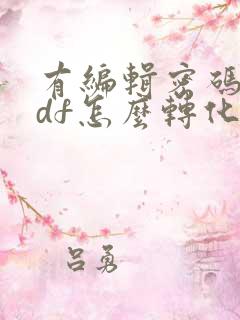 有編輯密碼
df怎麼轉化
呂勇